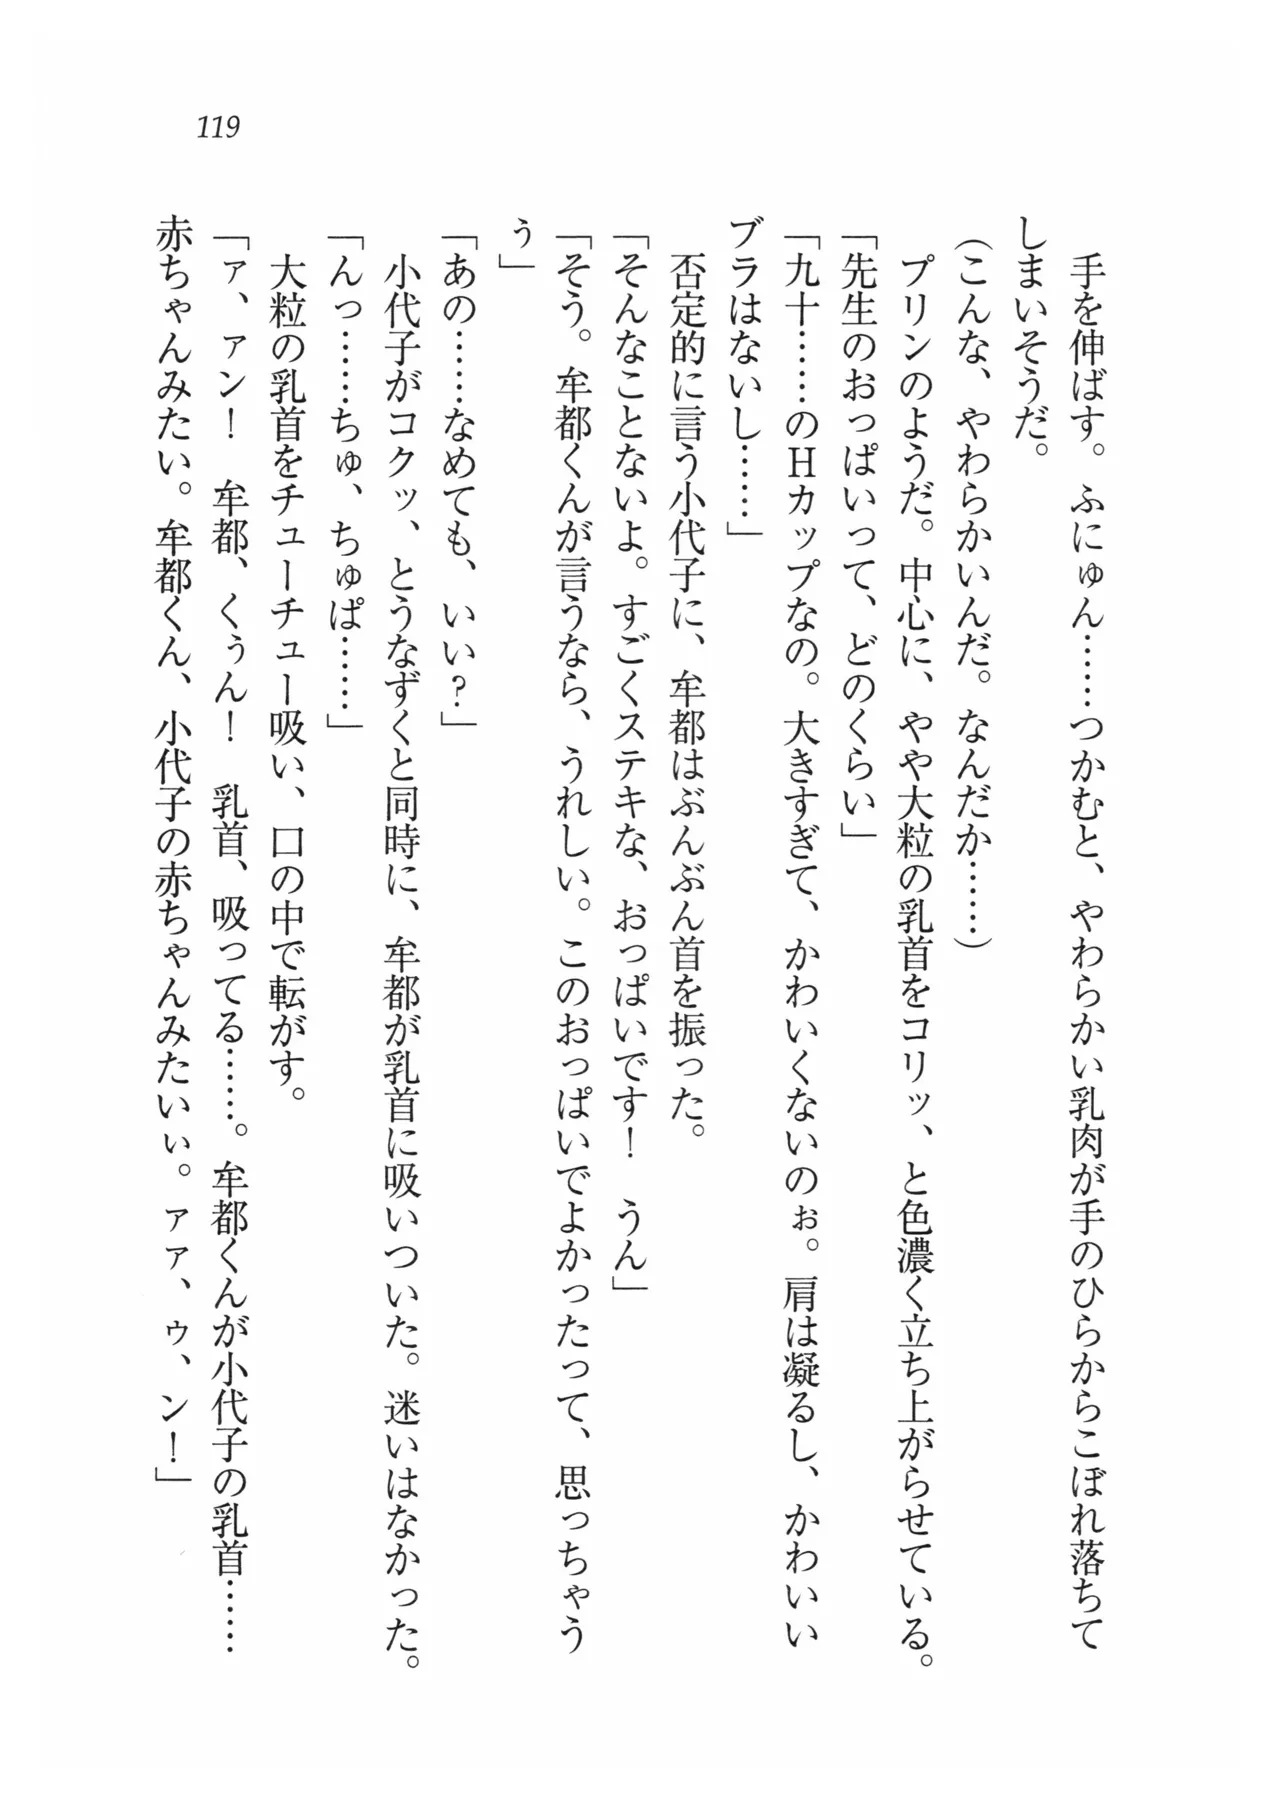 119
手を伸ばす。ふにゅん……つかむと、やわらかい乳肉が手のひらからこぼれ落ちて
しまいそうだ。
(こんな、やわらかいんだ。なんだか……)
プリンのようだ。中心に、やや大粒の乳首をコリッ、と色濃く立ち上がらせている。
「先生のおっぱいって、どのくらい」
「九十……のHカップなの。大きすぎて、かわいくないのぉ。肩は凝るし、かわいい
ブラはないし……」
否定的に言う小代子に、牟都はぶんぶん首を振った。
「そんなことないよ。すごくステキな、おっぱいです！　うん」
「そう。牟都くんが言うなら、うれしい。このおっぱいでよかったって、思っちゃう
ぅ」
「あの……なめても、いい？」
小代子がコクッ、とうなずくと同時に、牟都が乳首に吸いついた。迷いはなかった。
「んっ……ちゅ、ちゅぱ……」
大粒の乳首をチューチュー吸い、口の中で転がす。
「ァ、ァン！　牟都、くぅん！　乳首、吸ってる……。牟都くんが小代子の乳首……
赤ちゃんみたい。牟都くん、小代子の赤ちゃんみたいぃ。ァァ、ゥ、ン！」